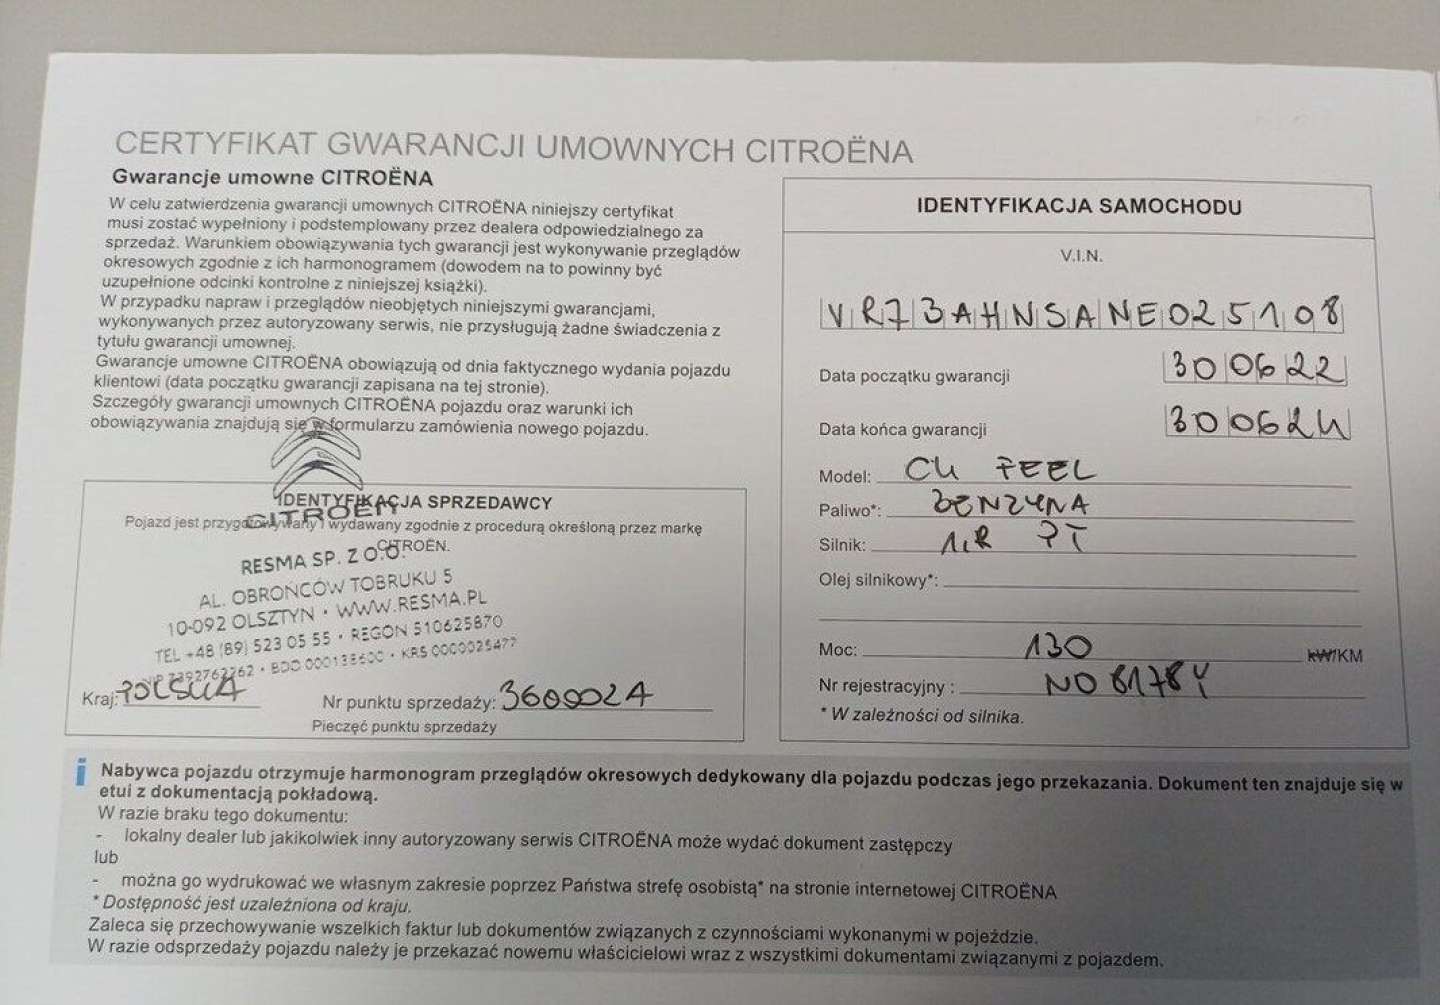 CERTYFIKAT GWARANCJI UMOWNYCH CITROËNA
Gwarancje umowne CITROËNA
W celu zatwierdzenia gwarancji umownych CITROËNA niniejszy certyfikat
musi zostać wypełniony i podstemplowany przez dealera odpowiedzialnego za
sprzedaż. Warunkiem obowiązywania tych gwarancji jest wykonywanie przeglądów
okresowych zgodnie z ich harmonogramem (dowodem na to powinny być
uzupełnione odcinki kontrolne z niniejszej książki).
W przypadku napraw i przeglądów nieobjętych niniejszymi gwarancjami,
wykonywanych przez autoryzowany serwis, nie przysługują żadne świadczenia z
tytułu gwarancji umownej.
Gwarancje umowne CITROËNA obowiązują od dnia faktycznego wydania pojazdu
klientowi (data początku gwarancji zapisana na tej stronie).
Szczegóły gwarancji umownych CITROËNA pojazdu oraz warunki ich
obowiązywania znajdują się w formularzu zamówienia nowego pojazdu.
IDENTYFIKACJA SPRZEDAWCY
CITROËN
Pojazd jest przygotowywany i wydawany zgodnie z procedurą określoną przez markę
CITROËN.
RESMA SP. Z O.O.
AL. OBROŃCÓW TOBRUKU 5
10-092 OLSZTYN • WWW.RESMA.PL
TEL +48 (89) 523 05 55 • REGON 510625870
NIP 7392762262 • BDO 000138600 • KRS 0000025477
Kraj: POLSKA Nr punktu sprzedaży: 360002A
Pieczęć punktu sprzedaży
IDENTYFIKACJA SAMOCHODU
V.I.N.
VR73AHNSANE025108
Data początku gwarancji 300622
Data końca gwarancji 300624
Model: C4 FEEL
Paliwo*: BENZYNA
Silnik: 1.2 PT
Olej silnikowy*:
Moc: 130 kW/KM
Nr rejestracyjny : NO 8178Y
* W zależności od silnika.
i Nabywca pojazdu otrzymuje harmonogram przeglądów okresowych dedykowany dla pojazdu podczas jego przekazania. Dokument ten znajduje się w
etui z dokumentacją pokładową.
W razie braku tego dokumentu:
- lokalny dealer lub jakikolwiek inny autoryzowany serwis CITROËNA może wydać dokument zastępczy
lub
- można go wydrukować we własnym zakresie poprzez Państwa strefę osobistą* na stronie internetowej CITROËNA
* Dostępność jest uzależniona od kraju.
Zaleca się przechowywanie wszelkich faktur lub dokumentów związanych z czynnościami wykonanymi w pojeździe.
W razie odsprzedaży pojazdu należy je przekazać nowemu właścicielowi wraz z wszystkimi dokumentami związanymi z pojazdem.